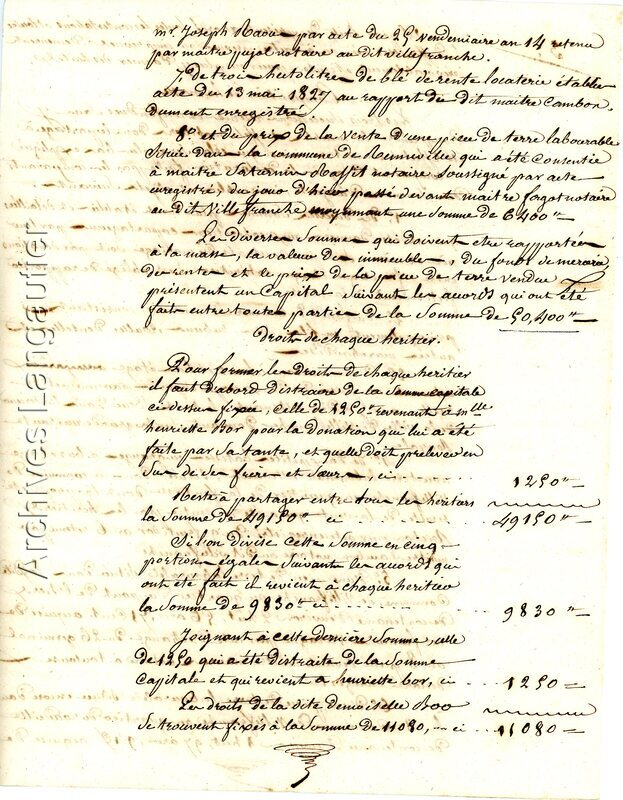 mr. Joseph Raou par acte du 25 Vendemiaire an 14 retenu
par maitre pujol notaire au dit villefranche.
7º de trois hectolitres de blé de rente locaterie établie
acte du 13 mai 1827 au rapport du dit maitre Cambon.
dument enregistré.
8º et du prix de la Vente d'une piece de terre labourable
Située dans la commune de Renneville qui a été Consentie
à maitre Saturnin Raffit notaire soussigné par acte
enregistré, du jour d'hier passé devant maitre fagot notaire
au dit Villefranche, moyennant une Somme de 6400"=
Les diverses Sommes qui doivent etre rapportées
à la masse, la valeur des immeubles, du fonds de mercerie
des rentes et le prix de la piece de terre vendue
présentent un Capital Suivant les accords qui ont été
fait entre toutes parties de la Somme de 50,400"=
droits de chaque heritier.
Pour former les droits de chaque heritier
il faut d'abord distraire de la Somme capitale
ci dessus fixée, celle de 1250" revenant à mlle
henriette Bor pour la donation qui lui a été
faite par Sa tante, et qu'elle doit prelever en
Sus de ses freres et Sœurs, ci 1250"=
Reste à partager entre tous les heritiers
la Somme de 49150" ci 49150"=
Si l'on divise cette Somme en cinq
portions égales Suivant les accords qui
ont été fait il revient à chaque heritier
la Somme de 9830" ci 9830"=
Joignant à cette dernière Somme, celle
de 1250 qui a été distraite de la Somme
Capitale et qui revient à henriette bor, ci 1250=
Les droits de la dite demoiselle Bor
Se trouvent fixés à la Somme de 11080, ci 11080=
Archives Langautier